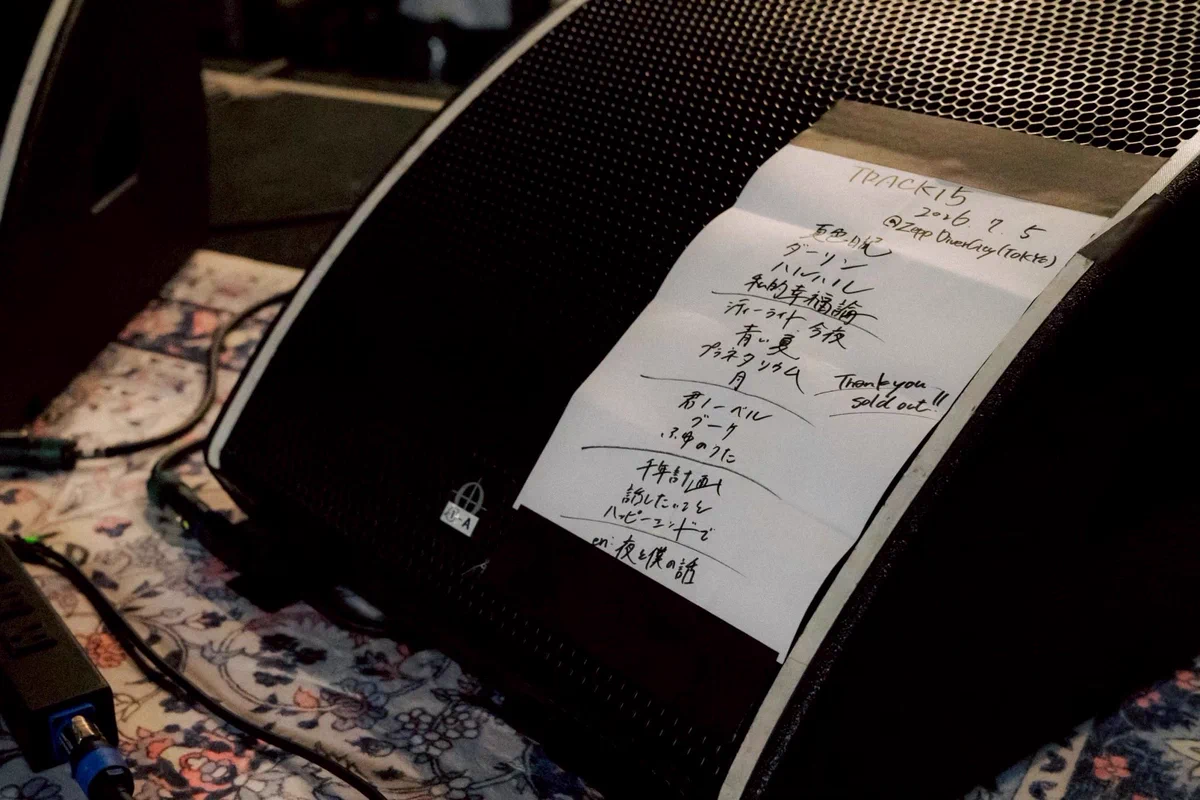 TRACK15
2026.7.5
@Zepp DiverCity(TOKYO)
夏色日記
ダーリン
ハルハル
私的幸福論
シティーライト今夜
青い夏
プラネタリウム
月
Thank you!!
sold out!!
君ノーベル
ブーケ
ふゆのうた
千年計画
話したいことを
ハッピーエンドで
en: 夜と僕の話
-A